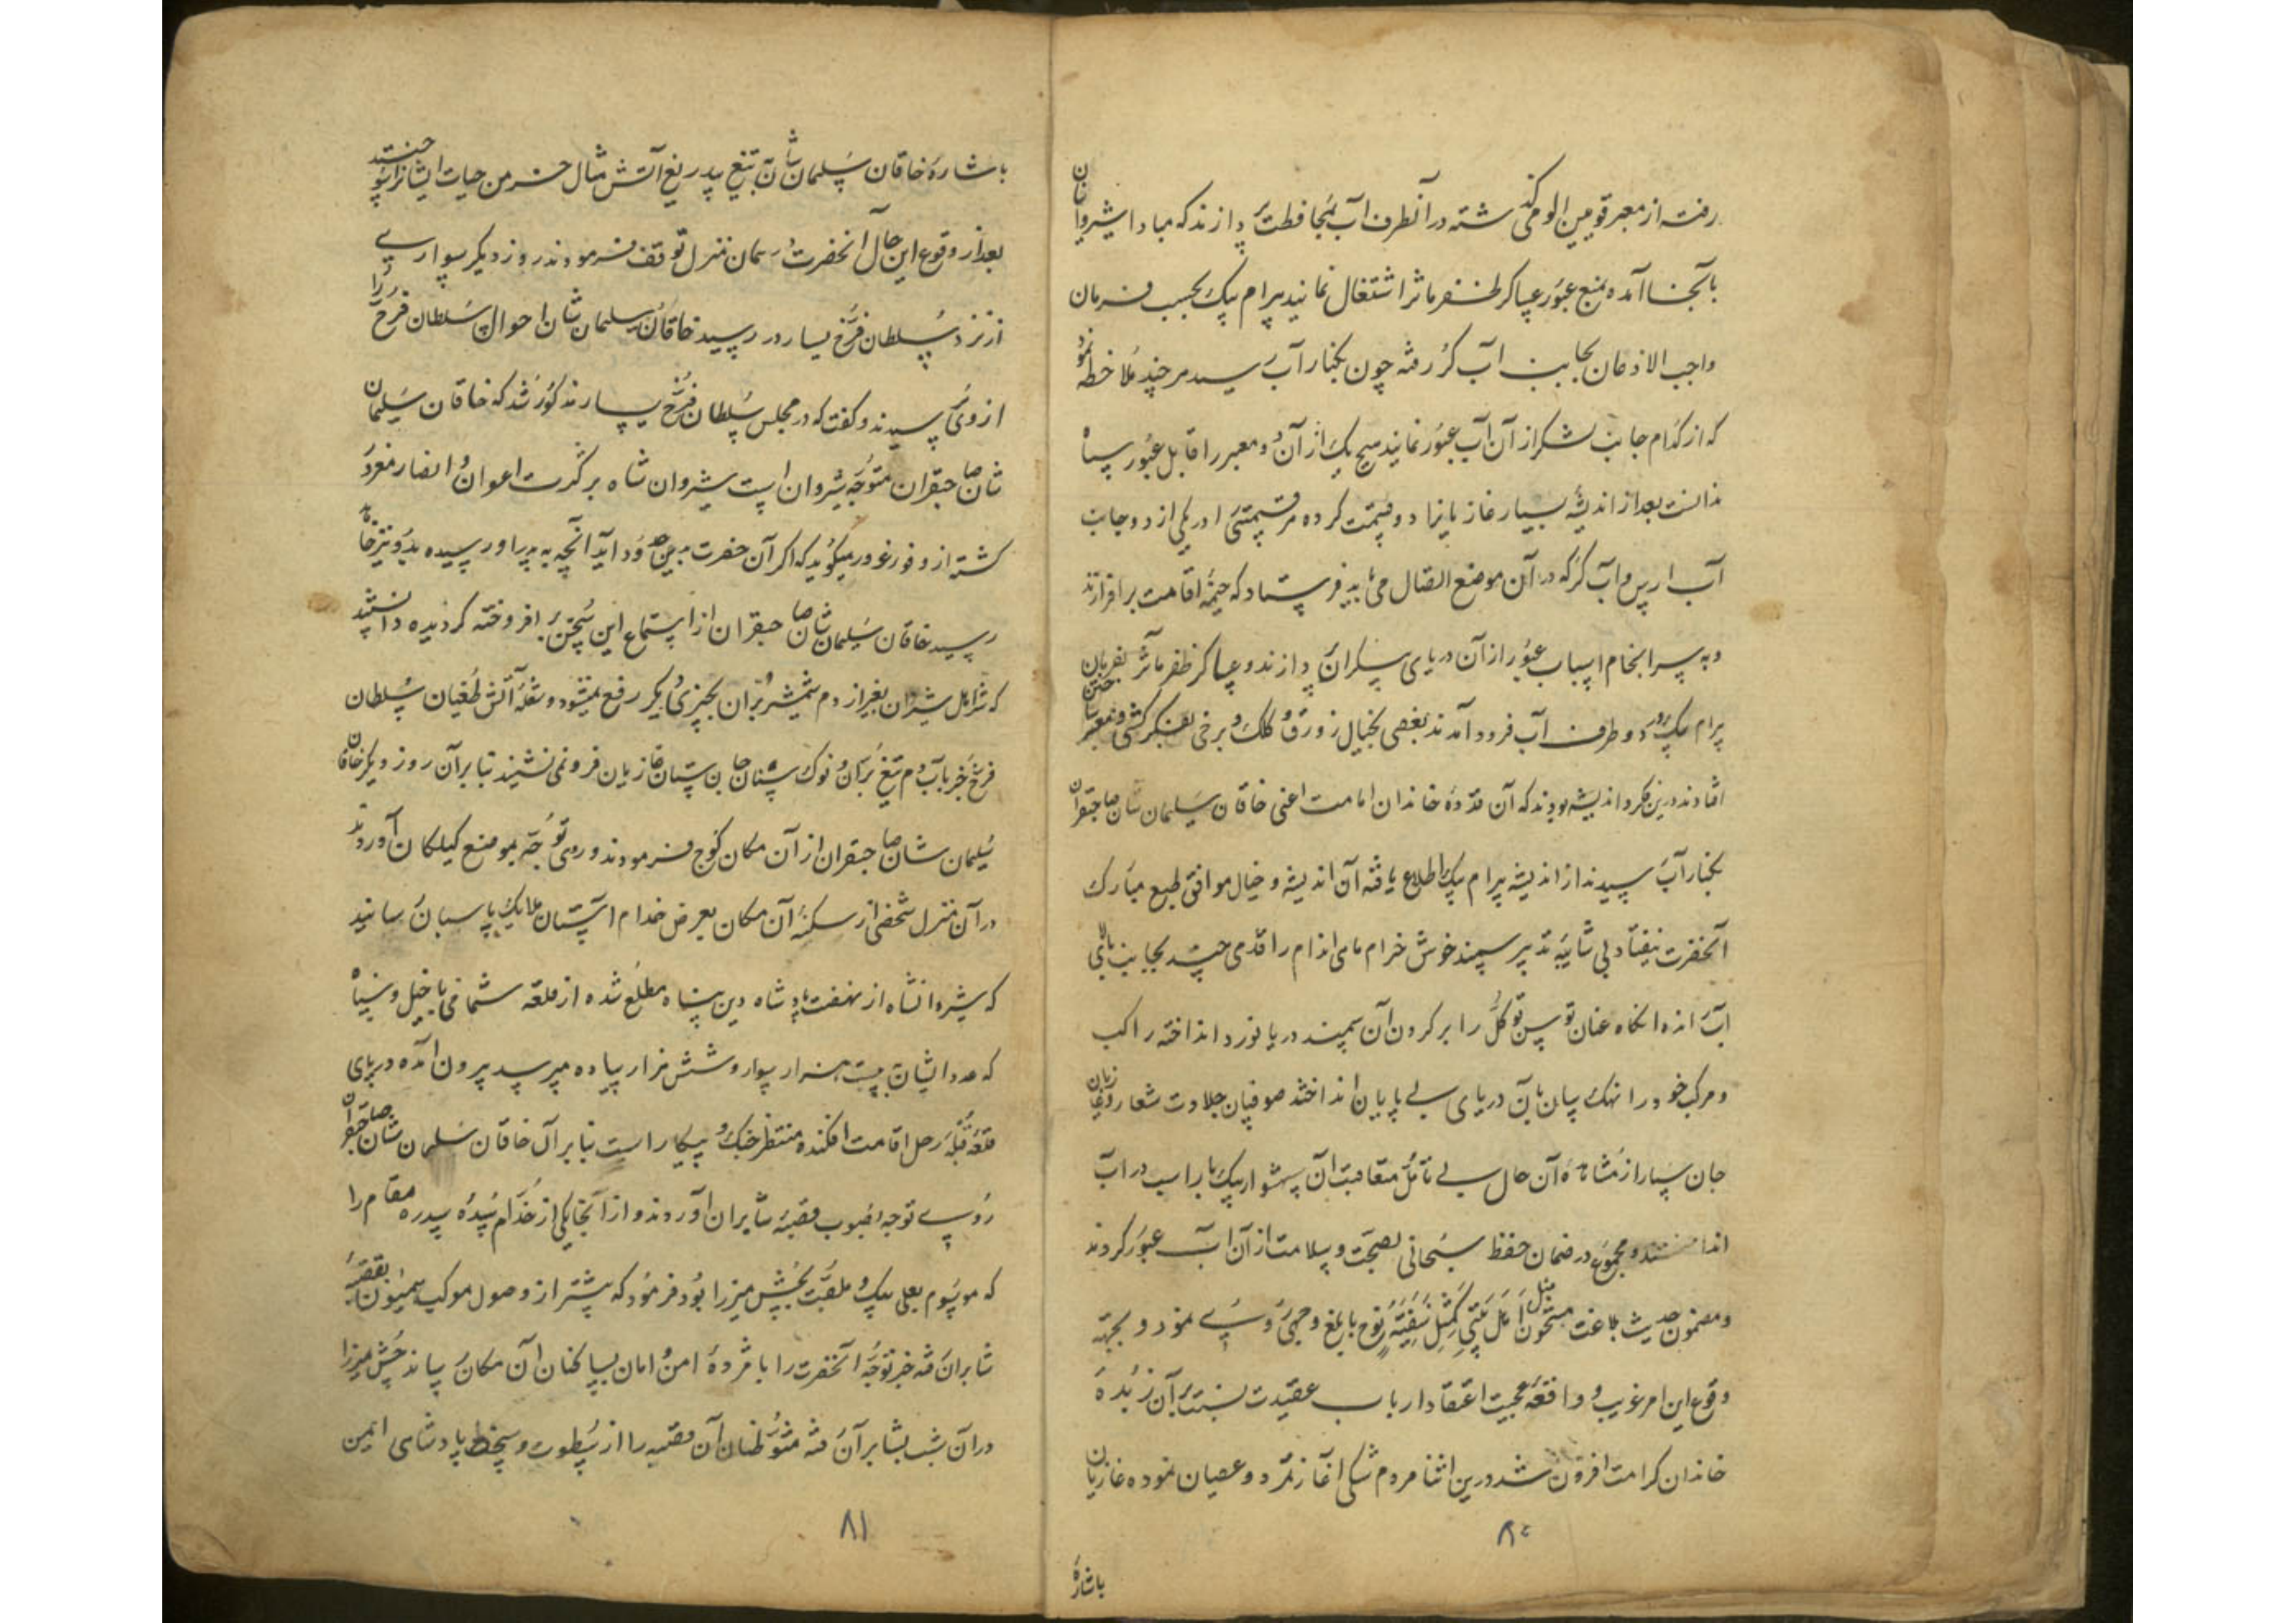 رفته از معبر قوین الومی گذشته در آنطرف آب بمحافظت پردازند که مبادا شیروانیان
بآنجا آمده بمنع عبور عساکر ظفر ماثر اشتغال نمایند بیرام بیک بحسب فرمان
واجب الاذعان بجانب آب کر رفته چون بکنار آب رسید هر چند ملاحظه نمود
که از کدام جانب لشکر از آن آب عبور نمایند هیچ یک از آن دو معبر را قابل عبور سپاه
ندانست بعد از اندیشه بسیار غازیانرا دو قسمت کرده هر قسمتی را در یکی از دو جانب
آب ارس و آب کر که در آن موضع اتصال می یابد فرستاد که خیمه اقامت برافرازند
و به سرانجام اسباب عبور از آن دریای بیکران پردازند و عساکر ظفر ماثر بفرمان
بیرام بیک در دو طرف آب فرود آمدند بعضی بخیال زورق و کلک و برخی بفکر کشتی و معبر
افتادند درین فکر و اندیشه بودند که آن قدوه خاندان امامت اعنی خاقان سلیمان شان صاحبقران
بکنار آب رسیدند از اندیشه بیرام بیک اطلاع یافته آن اندیشه و خیال موافق طبع مبارک
آنحضرت نیفتاد بی شایبه تدبیر سمند خوش خرام را قدمی چند بجانب بالای
آب رانده آنگاه عنان توسن توکل را بر گردن آن سمند دریا نورد انداخته راکب
و مرکب خود را نهنک سان بآن دریای بی پایان انداختند صوفیان جلادت شعار و غازیان
جان سپار از مشاهده آن حال بی تامل متعاقب آن شهسوار یکبار اسب در آب
انداختند و مجموع در ضمان حفظ سبحانی بصحت و سلامت از آن آب عبور کردند
و مضمون حدیث بلاغت مشحون مثل اهل بیتی کمثل سفینة نوح بابلغ وجهی روی نمود و بجهة
وقوع این امر غریب و واقعه عجیب اعتقاد ارباب عقیدت نسبت بآن زبده
خاندان کرامت افزون شد درین اثنا مردم شکی آغاز تمرد و عصیان نموده غازیان
۸۰
باشاره
باشاره خاقان سلیمان شان بتیغ بیدریغ آتش مثال خرمن حیات ایشانرا سوختند
بعد از وقوع این حال آنحضرت در همان منزل توقف فرمودند روز دیگر سواری
از نزد سلطان فرخ یسار در رسید خاقان سلیمان شان احوال سلطان فرخ را
از وی پرسیدند و گفت که در مجلس سلطان فرخ یسار مذکور شد که خاقان سلیمان
شان صاحبقران متوجه شیروان است شیروان شاه بر کثرت اعوان و انصار مغرور
کشته از وفور غرور میگوید که اگر آن حضرت باین حدود آید آنچه به پدر او رسیده بدو نیز خواهد
رسید خاقان سلیمان شان صاحبقران از استماع این سخن برافروخته گردیده دانستند
که شر اهل شیروان بغیر از دم شمشیر بران بچیزی دیگر رفع نمیشود و شعله آتش طغیان سلطان
فرخ جز بآب دم تیغ بران و نوک سنان جان ستان غازیان فرو نمی نشیند بنا بر آن روز دیگر خاقان
سلیمان شان صاحبقران از آن مکان کوچ فرمودند و روی توجه بموضع کیلکان آوردند
در آن منزل شخصی از سکنه آن مکان بعرض خدام آستان ملایک پاسبان رسانید
که شیروانشاه از نهضت پادشاه دین پناه مطلع شده از قلعه شماخی با خیل و سپاه
که عدد ایشان به بیست هزار سوار و شش هزار پیاده میرسید بیرون آمده در پای
قلعه قبله رحل اقامت افکنده منتظر جنگ و پیکار است بنا بر آن خاقان سلیمان شان صاحبقران
روی توجه بصوب قصبه شابران آوردند و از آنجا یکی از خدام سده سدره مقام را
که موسوم بعلی بیک و ملقب بچپش میرزا بود فرمود که پیشتر از وصول موکب همیون بقصبه
شابران رفته خبر توجه آنحضرت را با مژده امن و امان بساکنان آن مکان رساند چپش میرزا
در آن شب بشابران رفته متوطنان آن قصبه را از سطوت و سخط پادشاهی ایمن
۸۱